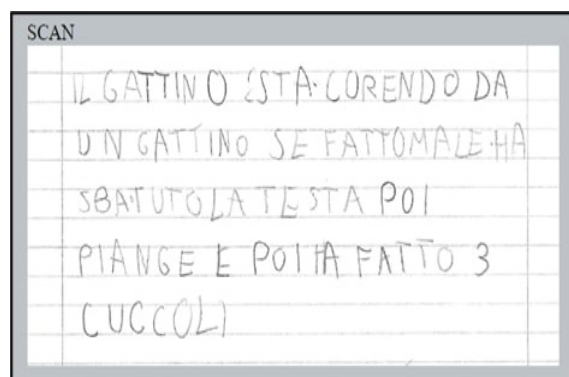 SCAN
IL GATTINO ESTA·CORENDO DA
UN GATTINO SE FATTOMALE·HA
SBATUTO LA TESTA POI
PIANGE E POI HA FATTO 3
CUCCOLI